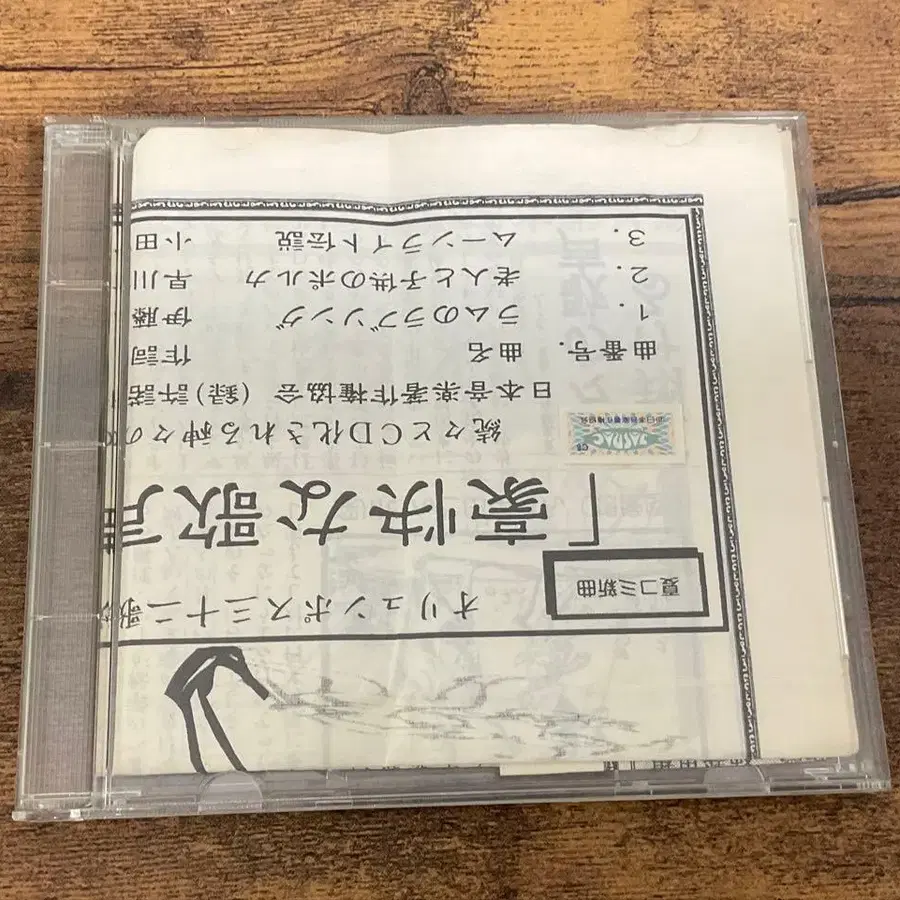 オリュンポス三十二歌
夏コミ新曲
「豪快な歌
続々とCD化される神々の
JASRAC
日本音楽著作権協会 (録)許諾
曲番号. 曲名 作詞
1. ラムのラブソング 伊藤
2. 老人と子供のポルカ 早川
3. ムーンライト伝説 小田